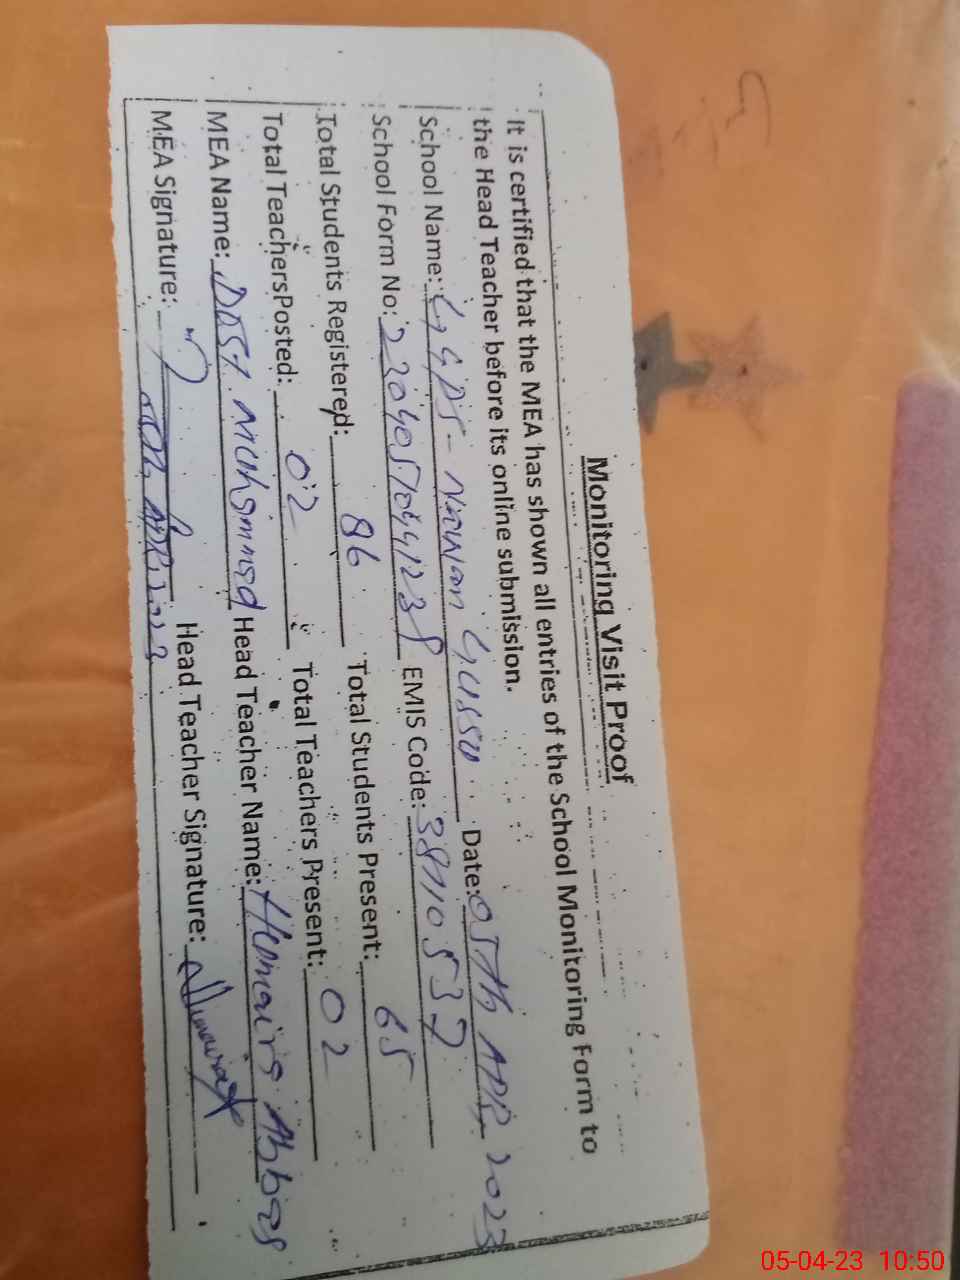 Monitoring Visit Proof
It is certified that the MEA has shown all entries of the School Monitoring Form to
the Head Teacher before its online submission.
School Name: GGPS- Nawan Gussu Date: 05Th APR 2023
School Form No: EMIS Code:
Total Students Registered: 86 Total Students Present: 65
Total TeachersPosted: 02 Total Teachers Present: 02
MEA Name: DOST Muhammad Head Teacher Name: Humaira Abbas
MEA Signature: Head Teacher Signature:
05-04-23 10:50